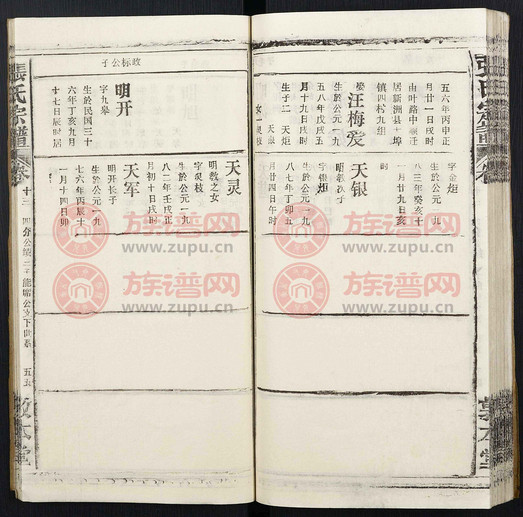 五六年丙申正
月廿一日戌时
由叶路中廟迁
居新洲县土埠
镇四村九组
娶汪梅爱
生於公元一九
五八年戊戌五
月十九日戌时
生子二 天炬
天银
女一灵枝
字金炬
生於公元一九
八三年癸亥十
一月廿九日亥
时
天银
明教次子
字银炬
生於公元一九
八七年丁卯五
月廿四日午时
政标公子
明开
字九皋
生於民国三十
六年丁亥九月
十七日辰时居
天灵
明教之女
字灵枝
生於公元一九
八二年壬戌正
月初十日戌时
天军
明开长子
生於公元一九
七六年丙辰十
一月十四日卯
張氏宗譜
卷十三
五五
敦本堂
族谱网
www.zupu.cn
族谱网
www.zupu.cn
族谱网
www.zupu.cn
族谱网
www.zupu.cn